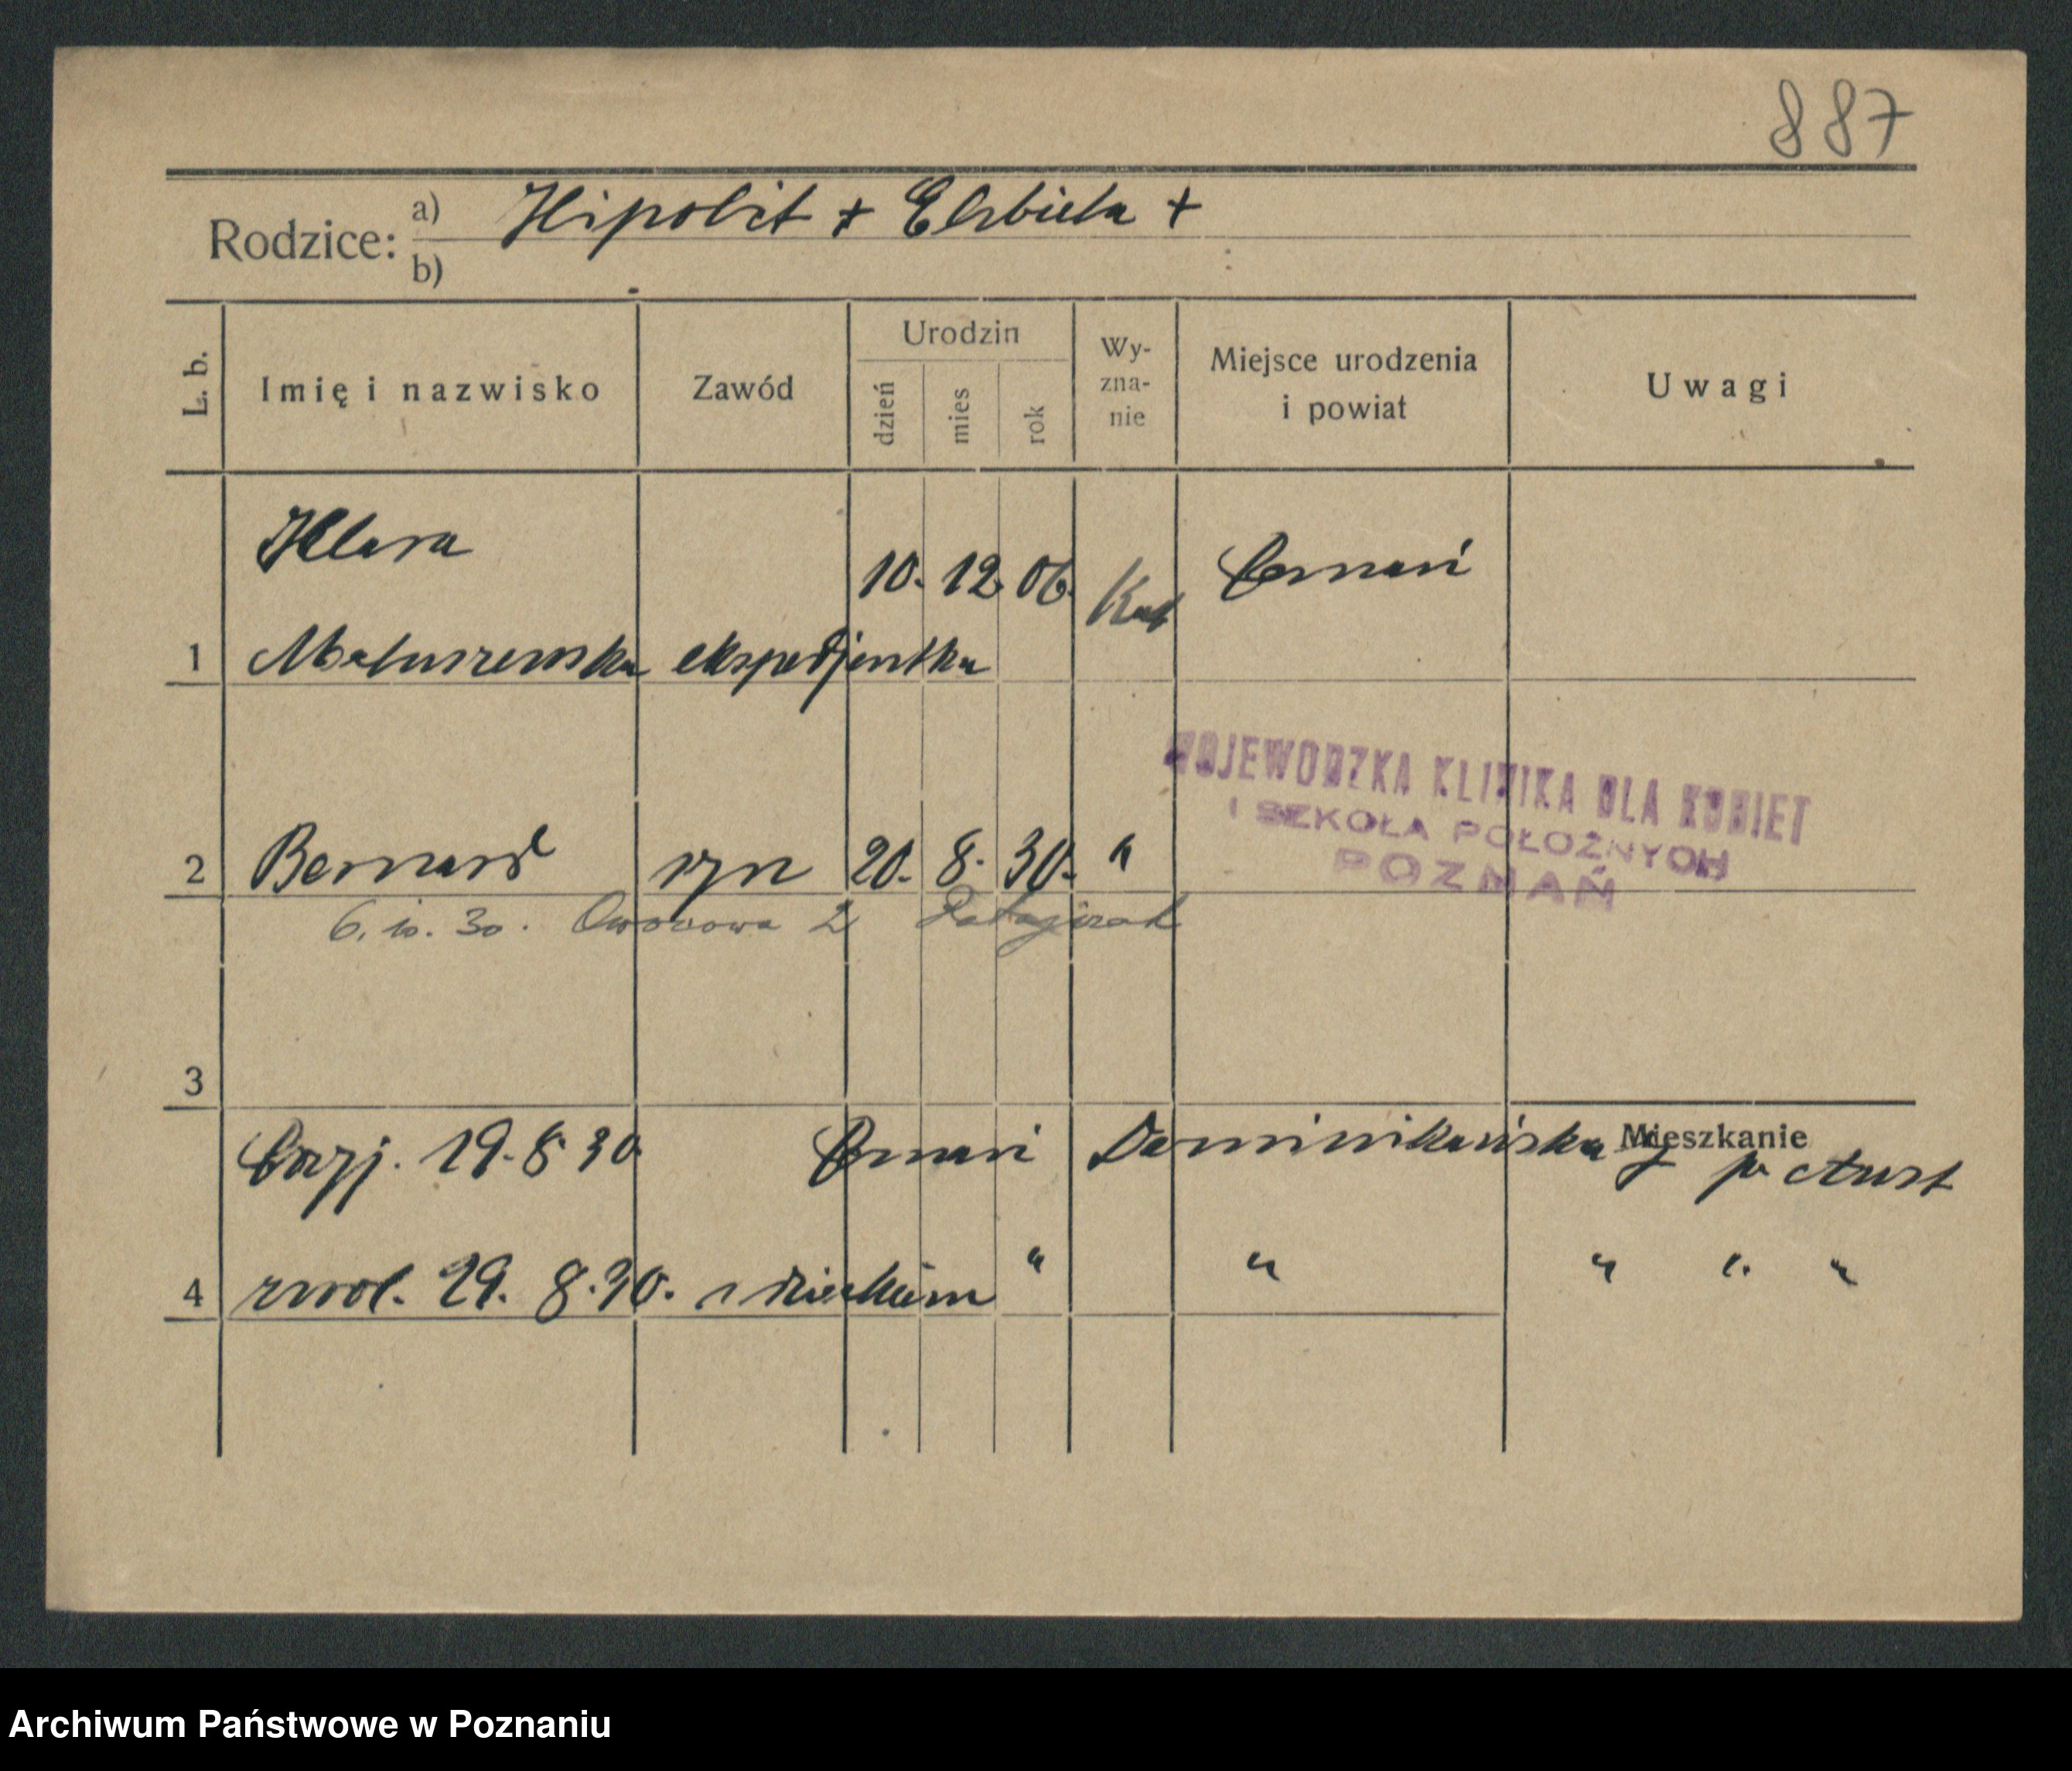 887
Rodzice: a) Hipolit + Elżbieta +
b)
L. b. Imię i nazwisko Zawód Urodzin dzień mies rok Wy-zna-nie Miejsce urodzenia i powiat Uwagi
Klara
10. 12 06. Kat Poznań
1 Matuszewska ekspedjentka
WOJEWODZKA KLINIKA DLA KOBIET
I SZKOŁA POŁOŻNYCH
POZNAŃ
2 Bernard syn 20. 8. 30. "
6. 10. 30. Owocowa 2
3
Mieszkanie
Przyj. 19. 8 30 Poznań Dominikańska 7 p.
4 zwol. 29. 8. 30. z dzieckiem " " " " "
Archiwum Państwowe w Poznaniu